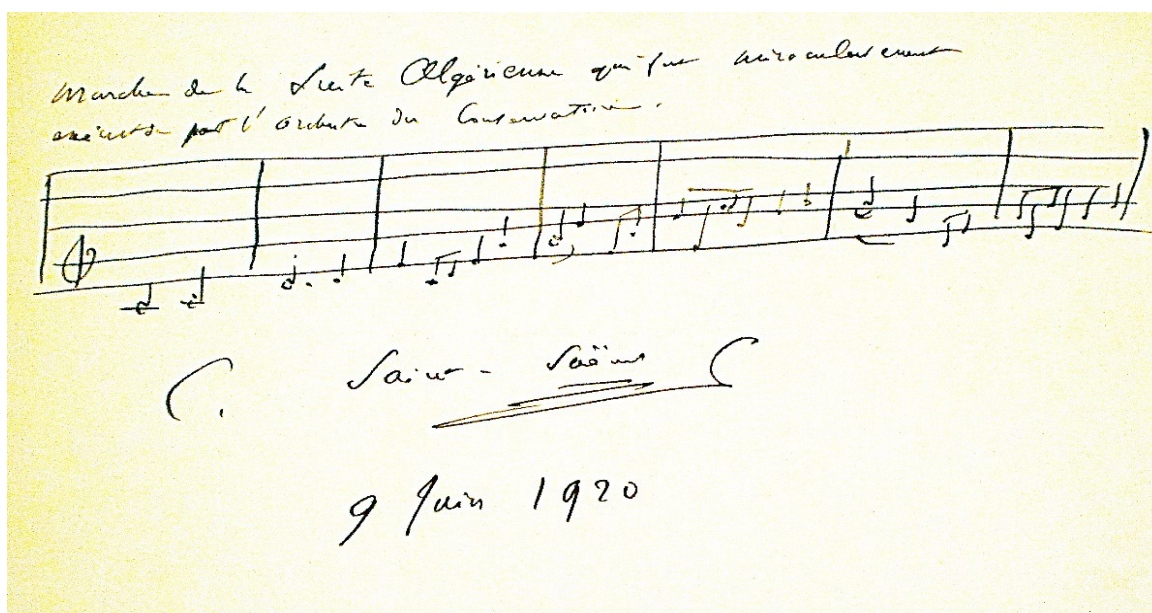 Marche de la Suite Algérienne qui fut miraculeusement
exécutée par l'orchestre du Conservatoire.
C. Saint-Saëns
9 Juin 1920